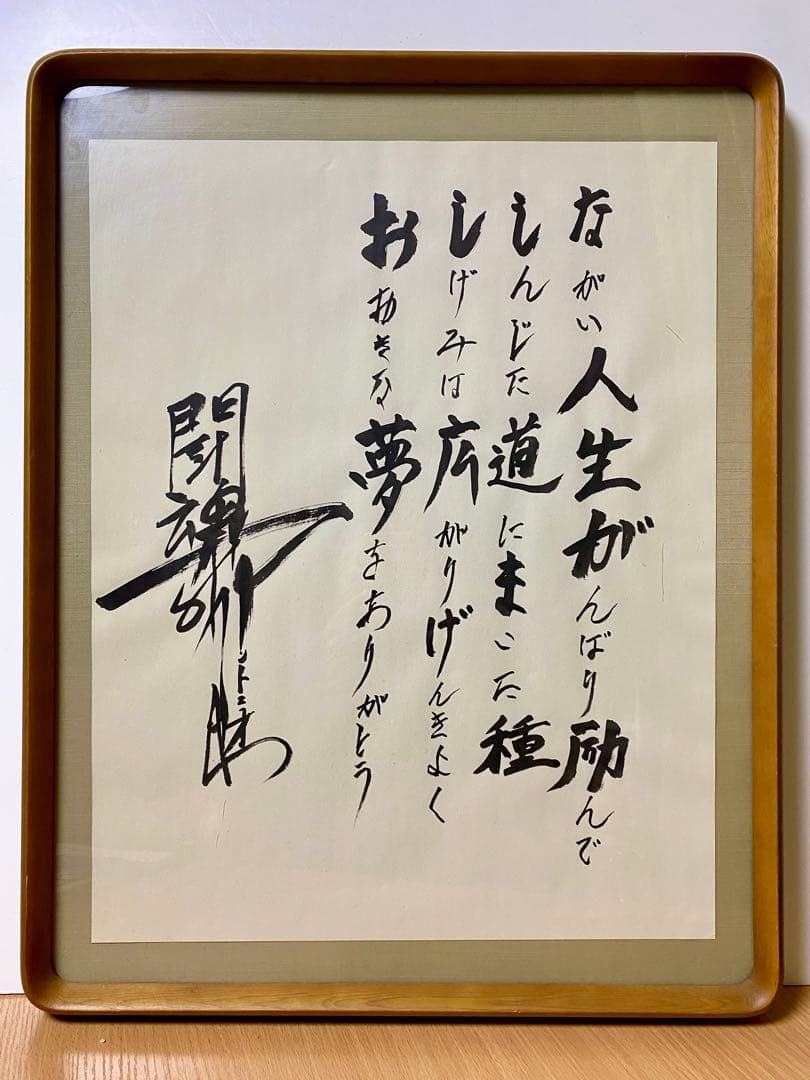 ながい人生がんばり励んで
しんじた道にまいた種
しげみは広がりげんきよく
おおきな夢をありがとう
闘魂
アントニオ猪木